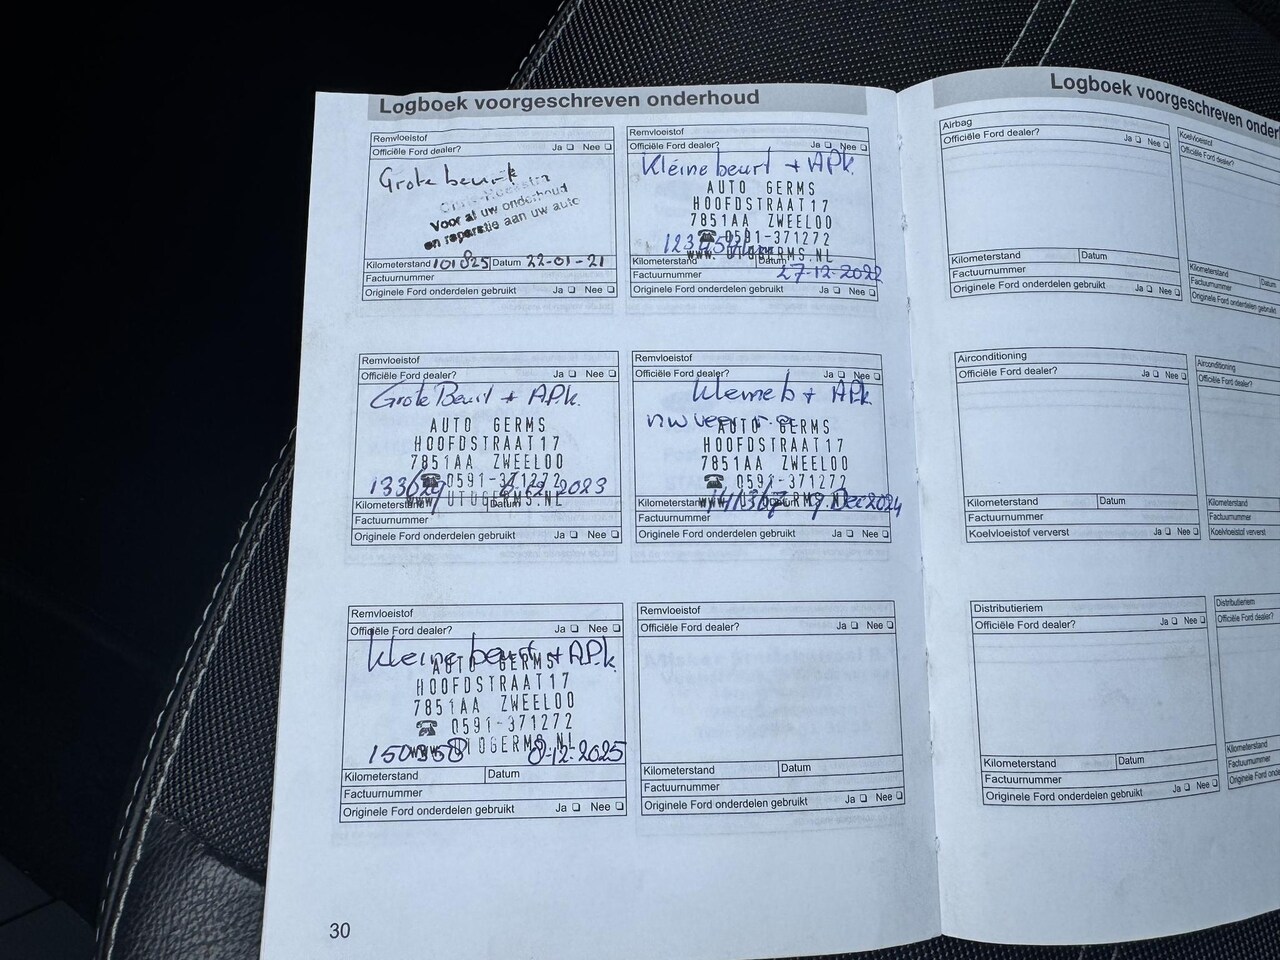 Logboek voorgeschreven onderhoud
Remvloeistof
Officiële Ford dealer? Ja Nee
Grote beurt
Voor al uw onderhoud
en reparatie aan uw auto
Kilometerstand 101825 Datum 22-01-21
Factuurnummer
Originele Ford onderdelen gebruikt Ja Nee
Remvloeistof
Officiële Ford dealer? Ja Nee
Kleine beurt + APk.
AUTO GERMS
HOOFDSTRAAT 17
7851AA ZWEELOO
☎ 0591-371272
Kilometerstand Datum
27-12-2022
Factuurnummer
Originele Ford onderdelen gebruikt Ja Nee
Remvloeistof
Officiële Ford dealer? Ja Nee
Grote Beurt + APk.
AUTO GERMS
HOOFDSTRAAT 17
7851AA ZWEELOO
☎ 0591-371272
2023
Kilometerstand Datum
Factuurnummer
Originele Ford onderdelen gebruikt Ja Nee
Remvloeistof
Officiële Ford dealer? Ja Nee
Kleine b + APk
AUTO GERMS
HOOFDSTRAAT 17
7851AA ZWEELOO
☎ 0591-371272
Kilometerstand 141367 9 Dec 2024
Factuurnummer
Originele Ford onderdelen gebruikt Ja Nee
Remvloeistof
Officiële Ford dealer? Ja Nee
Kleine beurt + APk.
AUTO GERMS
HOOFDSTRAAT 17
7851AA ZWEELOO
☎ 0591-371272
150358 8-12-2025
Kilometerstand Datum
Factuurnummer
Originele Ford onderdelen gebruikt Ja Nee
Remvloeistof
Officiële Ford dealer? Ja Nee
Kilometerstand Datum
Factuurnummer
Originele Ford onderdelen gebruikt Ja Nee
30
Logboek voorgeschreven
Airbag
Officiële Ford dealer? Ja Nee
Kilometerstand Datum
Factuurnummer
Originele Ford onderdelen gebruikt Ja Nee
Koelvloeistof
Officiële Ford dealer?
Kilometerstand Datum
Factuurnummer
Originele Ford onderdelen gebruikt
Airconditioning
Officiële Ford dealer? Ja Nee
Kilometerstand Datum
Factuurnummer
Koelvloeistof ververst Ja Nee
Airconditioning
Officiële Ford dealer?
Kilometerstand
Factuurnummer
Koelvloeistof ververst
Distributieriem
Officiële Ford dealer? Ja Nee
Kilometerstand Datum
Factuurnummer
Originele Ford onderdelen gebruikt Ja Nee
Distributieriem
Officiële Ford dealer?
Kilometerstand
Factuurnummer
Originele Ford